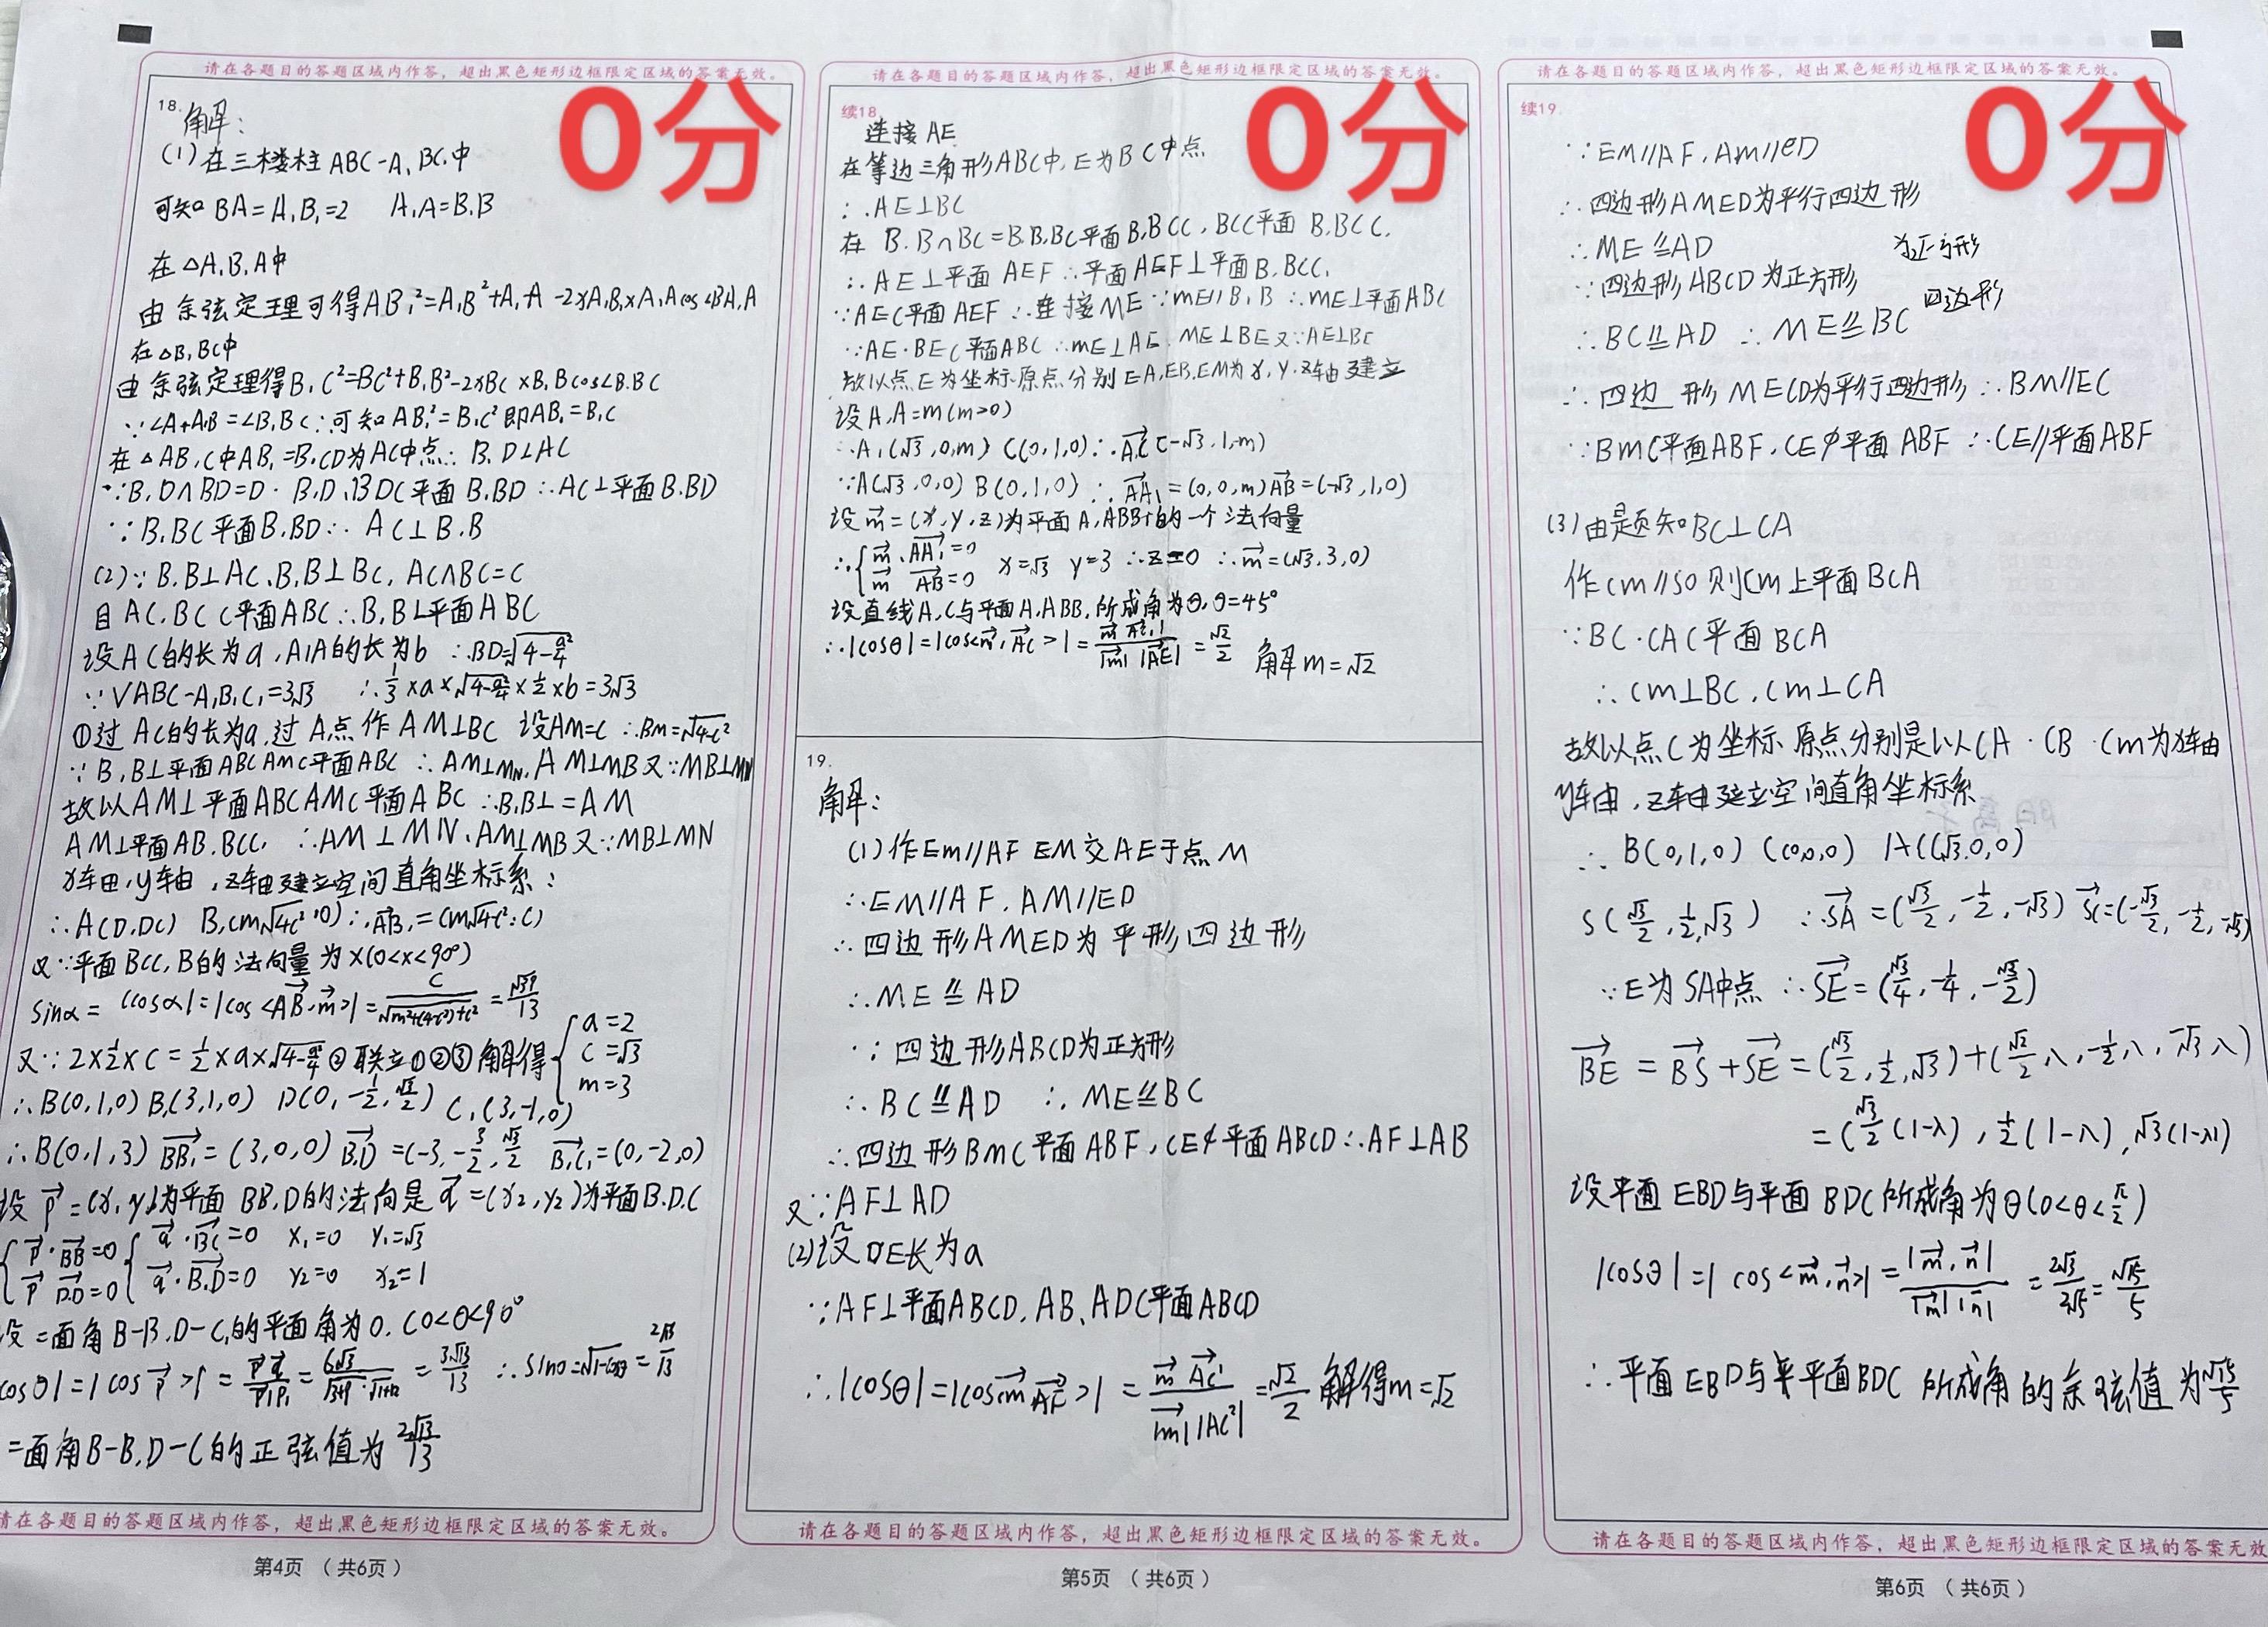 请在各题目的答题区域内作答，超出黑色矩形边框限定区域的答案无效。
0分
18.
解：
(1)在三棱柱ABC-A₁BC₁中
可知BA=A₁B₁=2 A₁A=B₁B
在△A₁B₁A中
由余弦定理可得AB₁²=A₁B²+A₁A-2×A₁B₁×A₁Acos∠BA₁A
在△B₁BC中
由余弦定理得B₁C²=BC²+B₁B²-2×BC×B₁Bcos∠B₁BC
∵∠A+A₁B=∠B₁BC∴可知AB₁²=B₁C²即AB₁=B₁C
在△AB₁C中AB₁=B₁CD为AC中点∴B₁D⊥AC
∵B₁D∩BD=D·B₁D、BD⊂平面B₁BD∴AC⊥平面B₁BD
∵B₁B⊂平面B₁BD∴AC⊥B₁B
(2)∵B₁B⊥AC、B₁B⊥BC, AC∩BC=C
且AC,BC⊂平面ABC∴B₁B⊥平面ABC
设AC的长为a,A₁A的长为b ∴BD=√(4-a²/4)
∵VABC-A₁B₁C₁=3√3 ∴1/3×a×√(4-a²/4)×1/2×b=3√3
①过AC的长为a,过A点作AM⊥BC 设AM=C ∴BM=√(4-c²)
∵B₁B⊥平面ABCAM⊂平面ABC ∴AM⊥MN,AM⊥MB又∵MB⊥MN
故以AM⊥平面ABCAM⊂平面ABC ∴B₁B⊥=AM
AM⊥平面AB₁BCC₁ ∴AM⊥MN、AM⊥MB又∵MB⊥MN
x轴,y轴,z轴建立空间直角坐标系：
∴A(D,DC) B₁(m√4-c²,0)∴AB₁=(m√4-c²:C)
又∵平面BCC₁B的法向量为x(0<x<90°)
sinα= |cosα|=|cos<AB·m>|=C/√(m²+(4-c²)+c²)=√39/13
又∵2×1/2×C=1/2×a×√(4-a²/4)③联立①②③解得{a=2 C=√3 m=3
∴B(0,1,0) B₁(3,1,0) D(0,-1/2,√3/2) C₁(3,-1,0)
∴B(0,1,3) BB₁=(3,0,0) B₁D=(-3,-3/2,√3/2 B₁C₁=(0,-2,0)
设p=(x,y)为平面BB₁D的法向是q=(x₂,y₂)为平面B₁D₁C
{p·BB=0 {q·BC=0 x₁=0 y₁=√3
p DD=0 q·B₁D=0 y₂=0 x₂=1
设=面角B-B₁D-C₁的平面角为θ,(0<θ<90°
cosθ|=|cosp>|= = =3√13/13 ∴sinθ=√1-cosθ=2√13/13
=面角B-B₁D-C的正弦值为2√13/13
请在各题目的答题区域内作答，超出黑色矩形边框限定区域的答案无效。
第4页（共6页）
请在各题目的答题区域内作答，超出黑色矩形边框限定区域的答案无效。
0分
续18.
连接AE
在等边三角形ABC中,E为BC中点
∴AE⊥BC
在B₁B∩BC=B₁B,BC平面B₁BCC,BCC平面B₁BCC₁
∴AE⊥平面AEF∴平面AEF⊥平面B₁BCC₁
∵AE⊂平面AEF∴连接ME∵ME//B₁B∴ME⊥平面ABC
∵AE·BE⊂平面ABC∴ME⊥AE,ME⊥BE又∵AE⊥BC
故以点E为坐标原点分别EA,EB,EM为x,y,z轴建立
设A₁A=m(m>0)
∴A₁(√3,0,m) C(0,1,0)∴A₁C(-√3,1,-m)
∵A(√3,0,0) B(0,1,0)∴AA₁=(0,0,m)AB=(-√3,1,0)
设m=(x,y,z)为平面A₁ABB₁的一个法向量
∴{m·AA₁=0 m AB=0 x=√3 y=3 ∴z=0 ∴m=(√3,3,0)
设直线A₁C与平面A₁ABB₁所成角为θ,θ=45°
∴|cosθ|=|cos<m,AC>|=m AC₁|/|m||AE|=√2/2 解m=√2
19.
解：
(1)作EM//AF EM交AE于点M
∴EM//AF,AM//ED
∴四边形AMED为平形四边形
∴ME⫽AD
∵四边形ABCD为正方形
∴BC⫽AD ∴ME⫽BC
∴四边形BMC平面ABF,CE⊄平面ABCD∴AF⊥AB
又∵AF⊥AD
(2)设DE长为a
∵AF⊥平面ABCD,AB、AD⊂平面ABCD
∴|cosθ|=|cosm AF>|=m AC/|m||AC²|=√2/2解得m=√2
请在各题目的答题区域内作答，超出黑色矩形边框限定区域的答案无效。
第5页（共6页）
请在各题目的答题区域内作答，超出黑色矩形边框限定区域的答案无效。
0分
续19.
∵EM//AF,AM//ED
∴四边形AMED为平行四边形
∴ME⫽AD
为正方形
∵四边形ABCD为正方形
四边形
∴BC⫽AD ∴ME⫽BC
∴四边形MECD为平行四边形∴BM//EC
∵BM⊂平面ABF,CE⊄平面ABF∴CE//平面ABF
(3)由题知BC⊥CA
作CM//SO则CM⊥平面BCA
∵BC·CA⊂平面BCA
∴CM⊥BC,CM⊥CA
故以点C为坐标原点分别是以CA·CB·CM为x轴
y轴,z轴建立空间直角坐标系
∴B(0,1,0) C(0,0,0) A(√3,0,0)
S(√3/2,1/2,√3) ∴SA=(√3/2,-1/2,-√3) SC=(-√3/2,-1/2,-√3)
∵E为SA中点∴SE=(√3/4,-1/4,-√3/2)
BE=BS+SE=(√3/2,1/2,√3)+(√3/2λ,-1/2λ,-√3λ)
=(√3/2(1-λ),1/2(1-λ),√3(1-λ))
设平面EBD与平面BDC所成角为θ(0<θ<π/2)
|cosθ|=|cos<m,n>|=|m,n|/|m||n|=2√3/2√5=√15/5
∴平面EBD与平面BDC所成角的余弦值为√15/5
请在各题目的答题区域内作答，超出黑色矩形边框限定区域的答案无效
第6页（共6页）